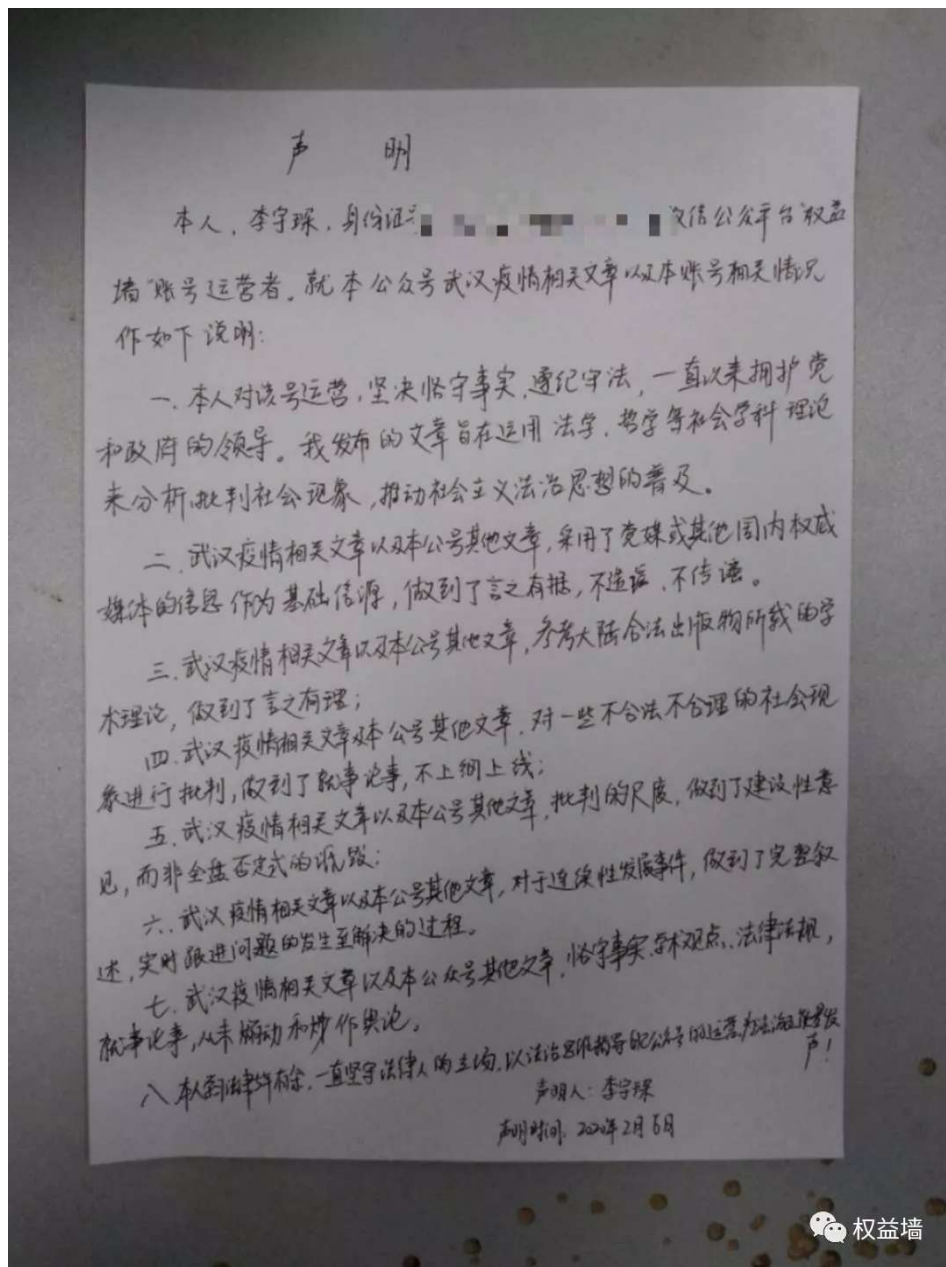 声 明
本人，李宇琛，身份证号 微信公众平台"权益
墙"账号运营者。就本公众号武汉疫情相关文章以及本账号相关情况
作如下说明：
一、本人对该号运营，坚决恪守事实、遵纪守法，一直以来拥护党
和政府的领导。我发布的文章旨在运用法学、哲学等社会学科理论
来分析批判社会现象，推动社会主义法治思想的普及。
二、武汉疫情相关文章以及本公号其他文章，采用了党媒或其他国内权威
媒体的信息作为基础信源，做到了言之有据，不造谣、不传谣。
三、武汉疫情相关文章以及本公号其他文章，参考大陆合法出版物所载的学
术理论，做到了言之有理；
四、武汉疫情相关文章及本公号其他文章，对一些不合法不合理的社会现
象进行批判，做到了就事论事，不上纲上线；
五、武汉疫情相关文章以及本公号其他文章，批判的尺度，做到了建设性意
见，而非全盘否定式的诋毁；
六、武汉疫情相关文章以及本公号其他文章，对于连续性发展事件，做到了完整叙
述，实时跟进问题的发生至解决的过程。
七、武汉疫情相关文章以及本公众号其他文章，恪守事实、学术观点、法律法规，
就事论事，从未煽动和炒作舆论。
八、本人 法律 ，一直坚守法律人的立场，以法治思维指导的公众号的运营，为法治 发
声！
声明人：李宇琛
声明时间：2020年2月6日
权益墙